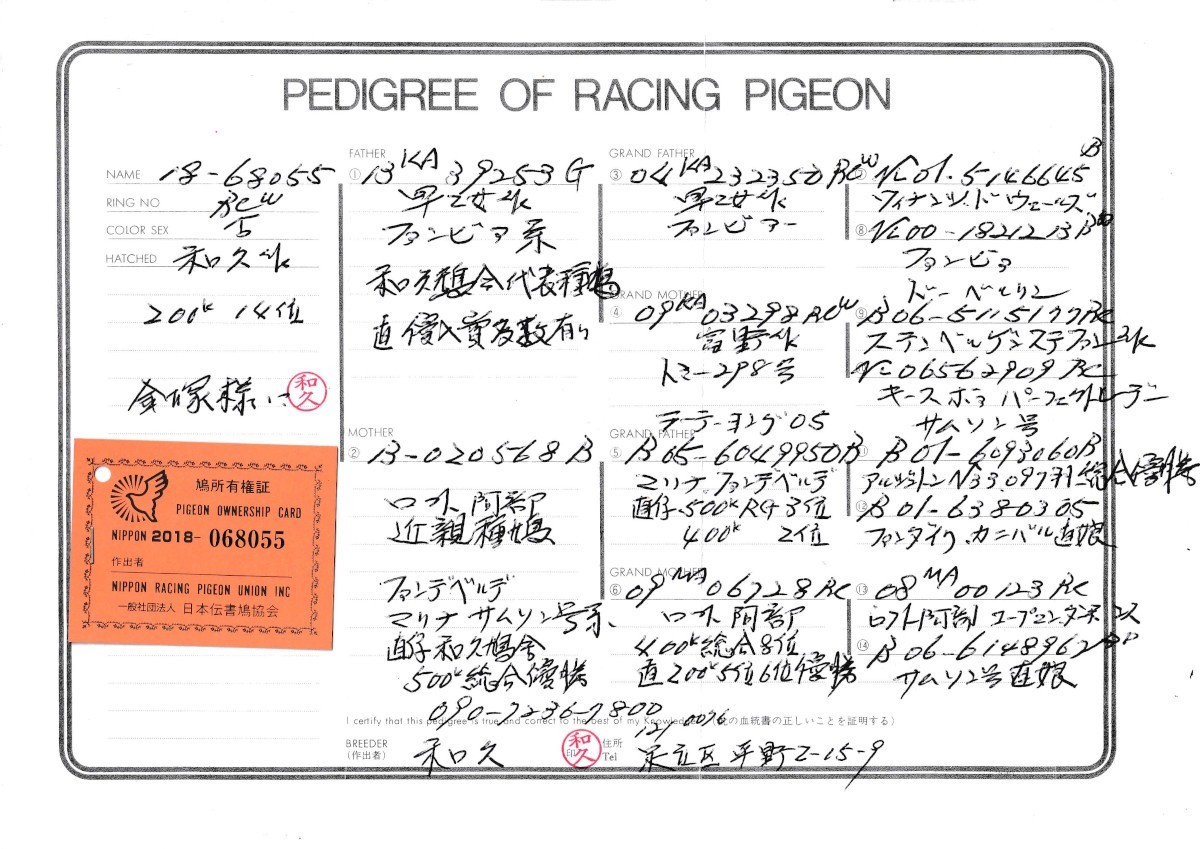 PEDIGREE OF RACING PIGEON
NAME 18-68055
RING NO BCW
COLOR SEX
HATCHED 和久作
200K 14位
金塚様に
和久
鳩所有権証
PIGEON OWNERSHIP CARD
NIPPON 2018- 068055
作出者
NIPPON RACING PIGEON UNION INC
一般社団法人 日本伝書鳩協会
FATHER
① 13KA39253G
早乙女作
ファンビア系
和久鳩舎代表種鳩
直優入賞多数有り
MOTHER
② B-020568B
ロフト阿部
近親種鳩
ファンデベルデ
マリナ サムソン号系
直仔和久鳩舎
500K総合優勝
090-7236-7800
GRAND FATHER
③ 04KA232350BCW
早乙女作
ファンビアー
GRAND MOTHER
④ 09KA03298BCW
富野作
トミー298号
GRAND FATHER
⑤ B05-6049950B
マリナ ファンデベルデ
直仔、500K RG3位
400K 2位
GRAND MOTHER
⑥ 09MA06728BC
ロフト阿部
400K総合8位
直200K5位6位優勝
NL01-5146645B
ファイナンツ、ドウェールズ
⑧ NL00-1821213B
ファンビア
ドーベルリン
⑨ B06-5115177BC
ステンベルゲンステファン作
NL06562909BC
キースボス パーフェクトレデー
サムソン号
B01-6093060B
総合優勝
⑫ B01-6380305
ファンダイク、カニバル直娘
⑬ 08MA00123BC
ロフト阿部
⑭ B06-6148962
サムソン号直娘
I certify that this pedigree is true and correct to the best of my Knowledge (此の血統書の正しいことを証明する)
BREEDER
(作出者)
和久
和久
印
住所
Tel
121-0076
足立区平野2-15-9